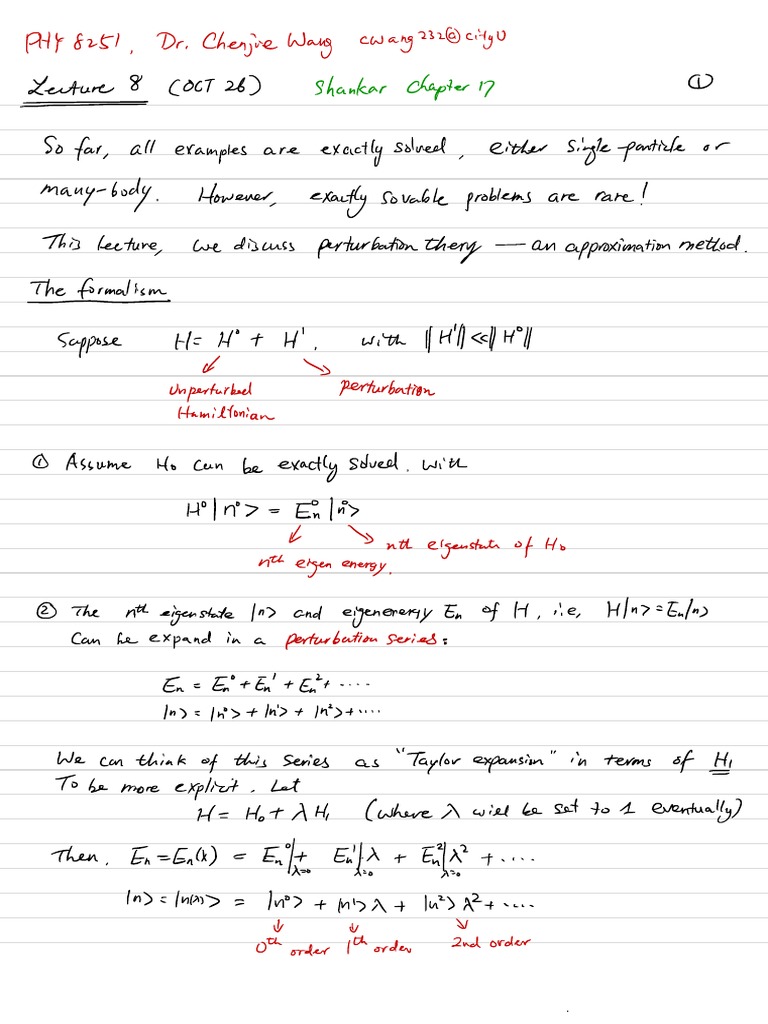 PHY 8251, Dr. Chenjie Wang cwang232@cityU
Lecture 8 (OCT 26) Shankar Chapter 17 ①
So far, all examples are exactly solved, either single-particle or
many-body. However, exactly sovable problems are rare!
This lecture, we discuss perturbation thery — an approximation method.
The formalism
Suppose H = H⁰ + H¹, with ‖H¹‖ << ‖H⁰‖
unperturbed perturbation
Hamiltonian
① Assume H₀ can be exactly solved. with
H⁰|n⁰> = Eₙ⁰|n⁰>
nth eigenstate of H₀
nth eigen energy.
② The nth eigenstate |n> and eigenenergy Eₙ of H, i.e, H|n> = Eₙ|n>
Can be expand in a perturbation series:
Eₙ = Eₙ⁰ + Eₙ¹ + Eₙ² + ....
|n> = |n⁰> + |n¹> + |n²> + ....
We can think of this series as "Taylor expansion" in terms of H₁
To be more explicit. Let
H = H₀ + λH₁ (where λ will be set to 1 eventually)
Then, Eₙ = Eₙ(λ) = Eₙ⁰|λ=0 + Eₙ¹|λ=0 λ + Eₙ²|λ=0 λ² + ....
|n> = |n(λ)> = |n⁰> + |n¹>λ + |n²>λ² + ....
0th order 1th order 2nd order